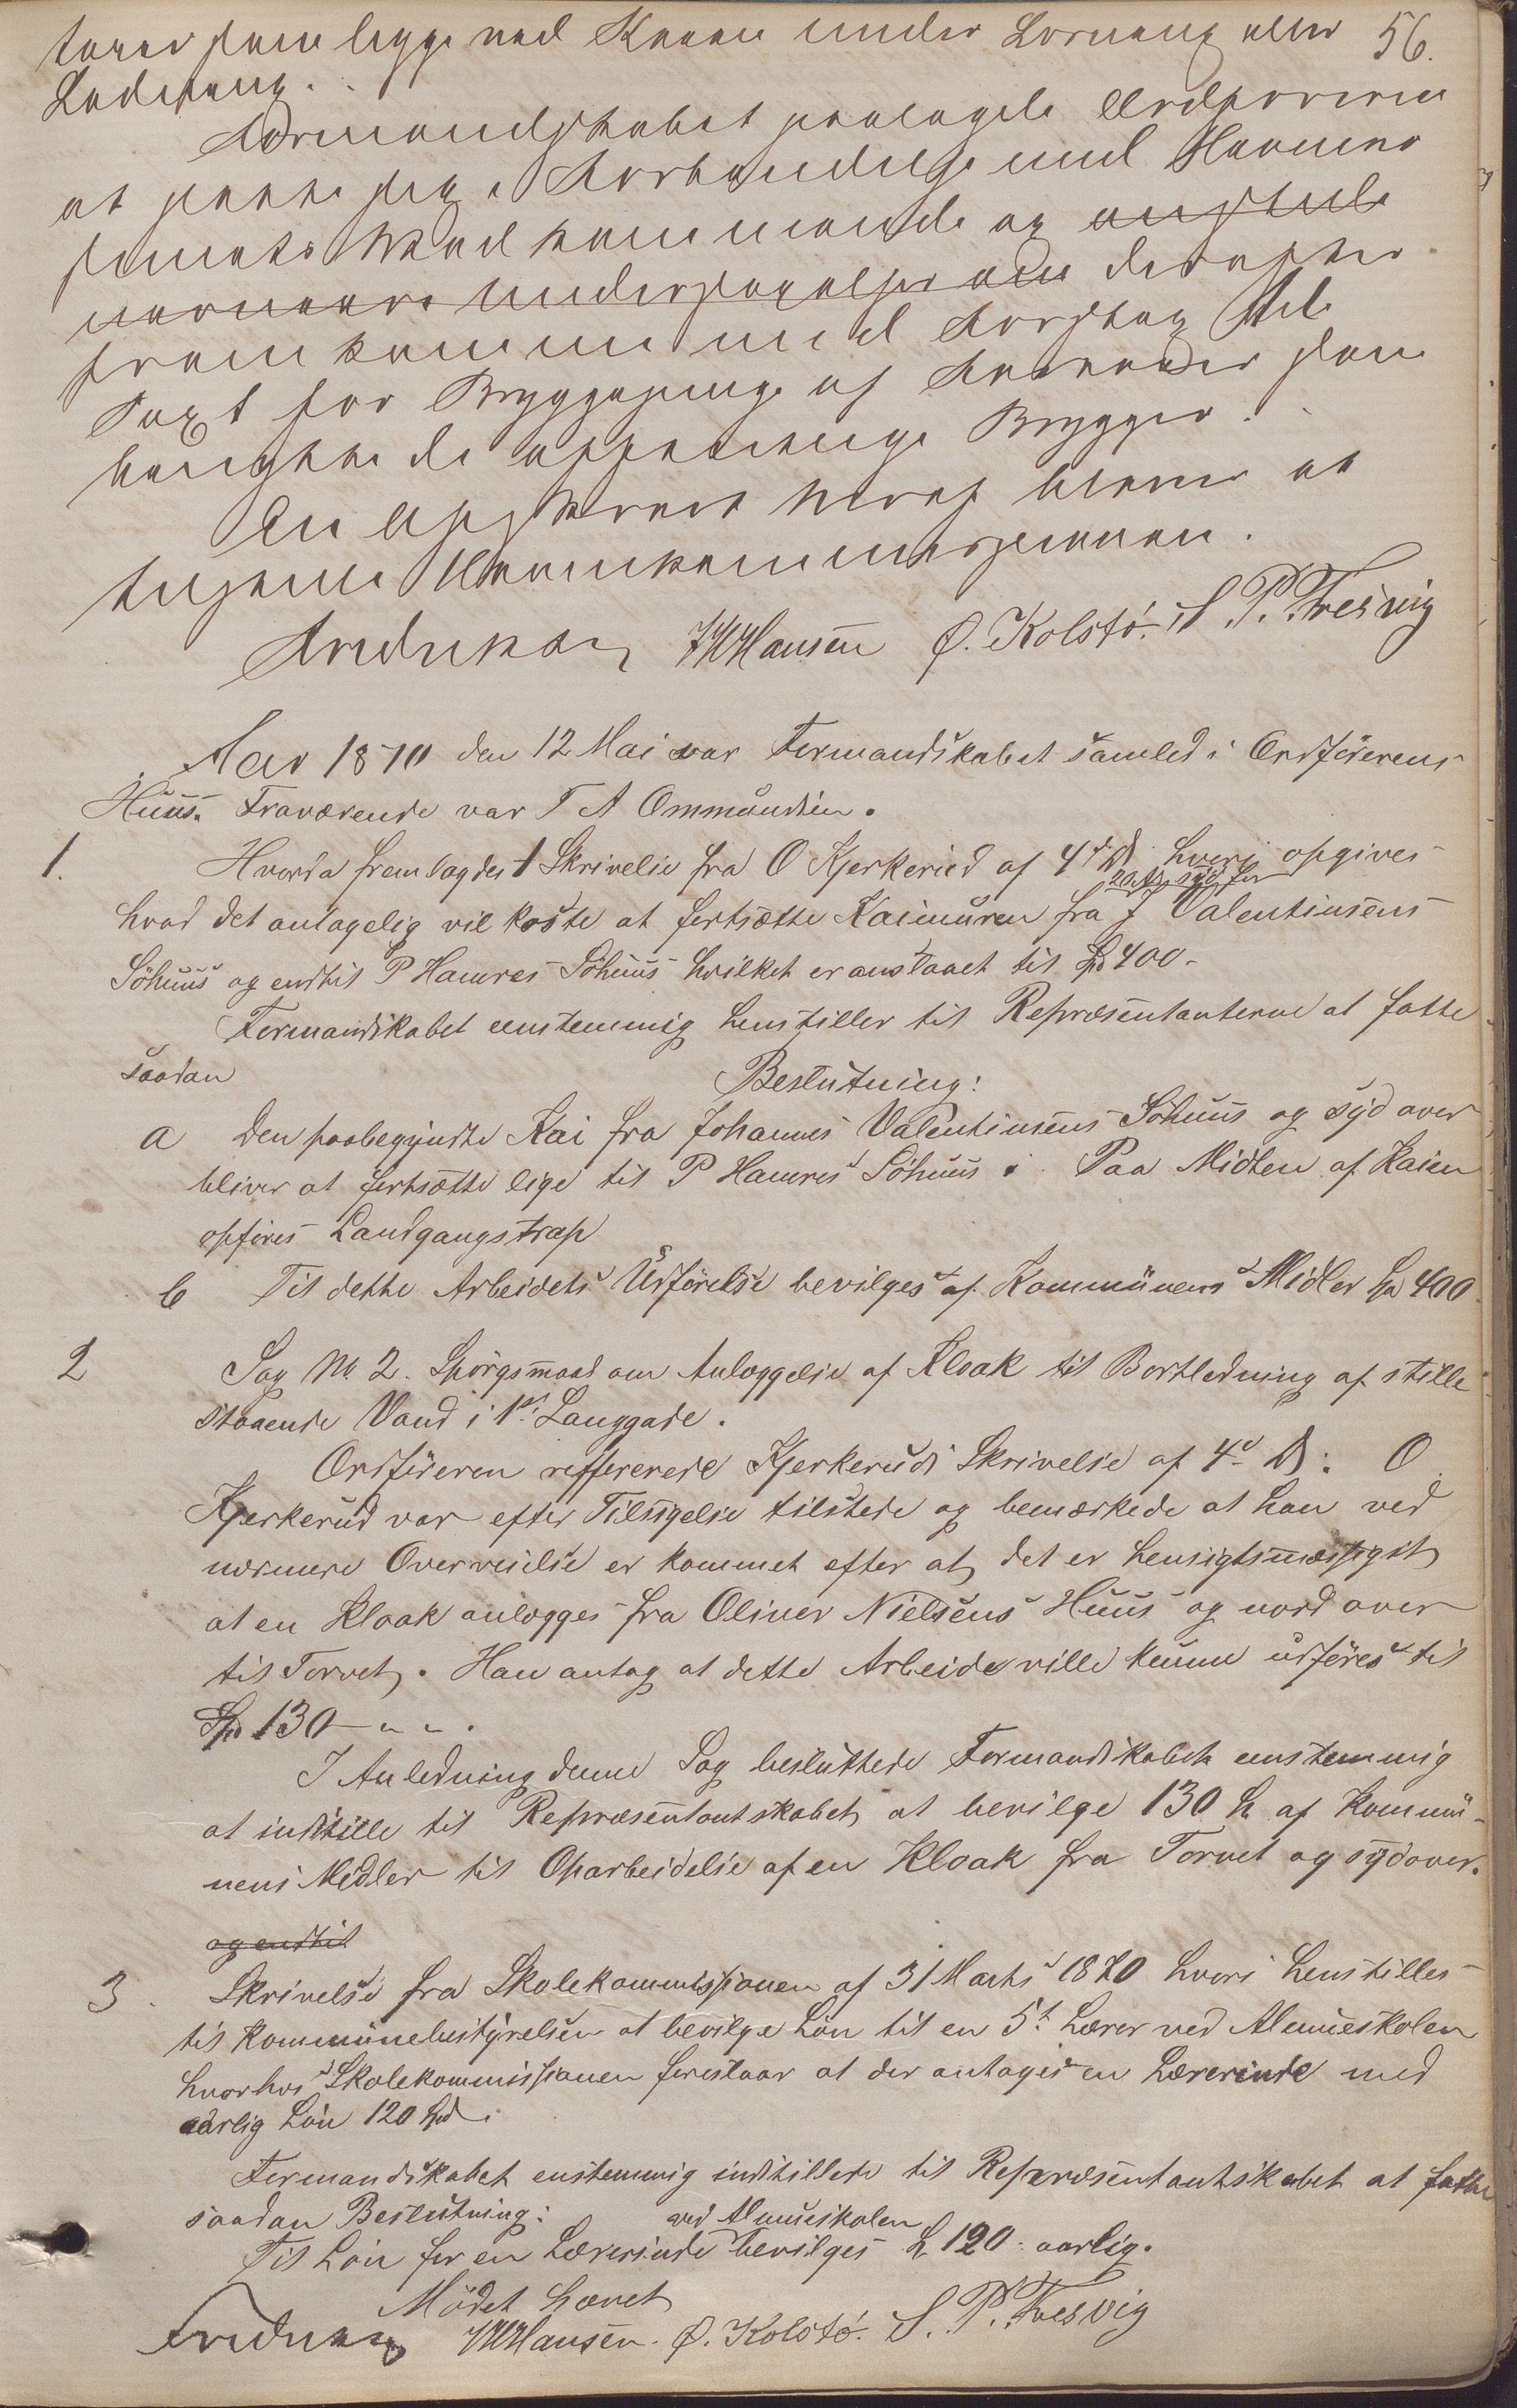 som ligge ved Kaien under Losning eller 56.
Ladning.
Formandskabet paalagde Ordføreren
at sætte sig i Forbindelse med Havne
Vedkommende og
nærmere Undersøgelser om derefter
fremkomme med Forslag til
Taxt for af som
benytte de Brygger.
En Afskrivt heraf bliver at
tilstille Havnekommissionen.
JWHansen Ø. Kolstö. S. P. Tresvig
Aar 1870 den 12 Mai var Formandskabet samled i Ordførerens
Huus. Fraværende var T A Ommundsen.
1. Hvorda fremlagdes 1 Skrivelse fra O Kjerkerud af 4d ds. hvori opgives
hvad det antagelig vil koste at fortsætte Kaimuren fra J Valentinsens
Söhuus og endtil P Hamres Söhuus hvilket er anslaaet til Spd 400-
Formandskabet eenstemmig henstiller til Repræsentanterne at fatte
saadan Beslutning:
a Den paabegyndte Kai fra Johannes Valentinsens Söhuus og syd over
bliver at fortsætte lige til P Hamres Söhuus. Paa Midten af Kaien
opføres Landgangstrap
b Til dette Arbeidets Udførelse bevilges af Kommunens Midler Spd 400.
2 Sag No 2. Spörgsmaal om Anlæggelse af Kloak til Bortledning af stille
staaende Vand i 1ste Langgade.
Ordføreren reffererede Kjerkeruds Skrivelse af 4d ds. O.
Kjerkerud var efter Tilsigelse tilstede og bemærkede at han ved
nærmere Overveielse er kommet efter at det er hensigtsmæssigst
at en Kloak anlægges fra Oliver Nielsens Huus og nord over
til Torvet. Han antog at dette Arbeide ville kunne udføres til
Spd 130 - " - " .
I Anledning denne Sag besluttede Formandskabet eenstemmig
at indstille til Repræsentantskabet at bevilge 130 Spd af Kommu-
nens Midler til Oparbeidelse af en Kloak fra Torvet og sydover.
og endtil
3. Skrivelse fra Skolekommissionen af 31 Marts 1870 hvori henstilles
til Kommunebestyrelsen at bevilge Lön til en 5t Lærer ved Almueskolen
hvorhos Skolekommissionen foreslaar at der antages en Lærerinde med
aarlig Lön 120 Spd.
Formandskabet enstemmig indstillede til Repræsentantskabet at fatte
saadan Beslutning: ved Almueskolen
Til Lön for en Lærerinde bevilges Spd 120 aarlig.
Mödet hævet
JWHansen. Ø. Kolstö. S. P. Tresvig